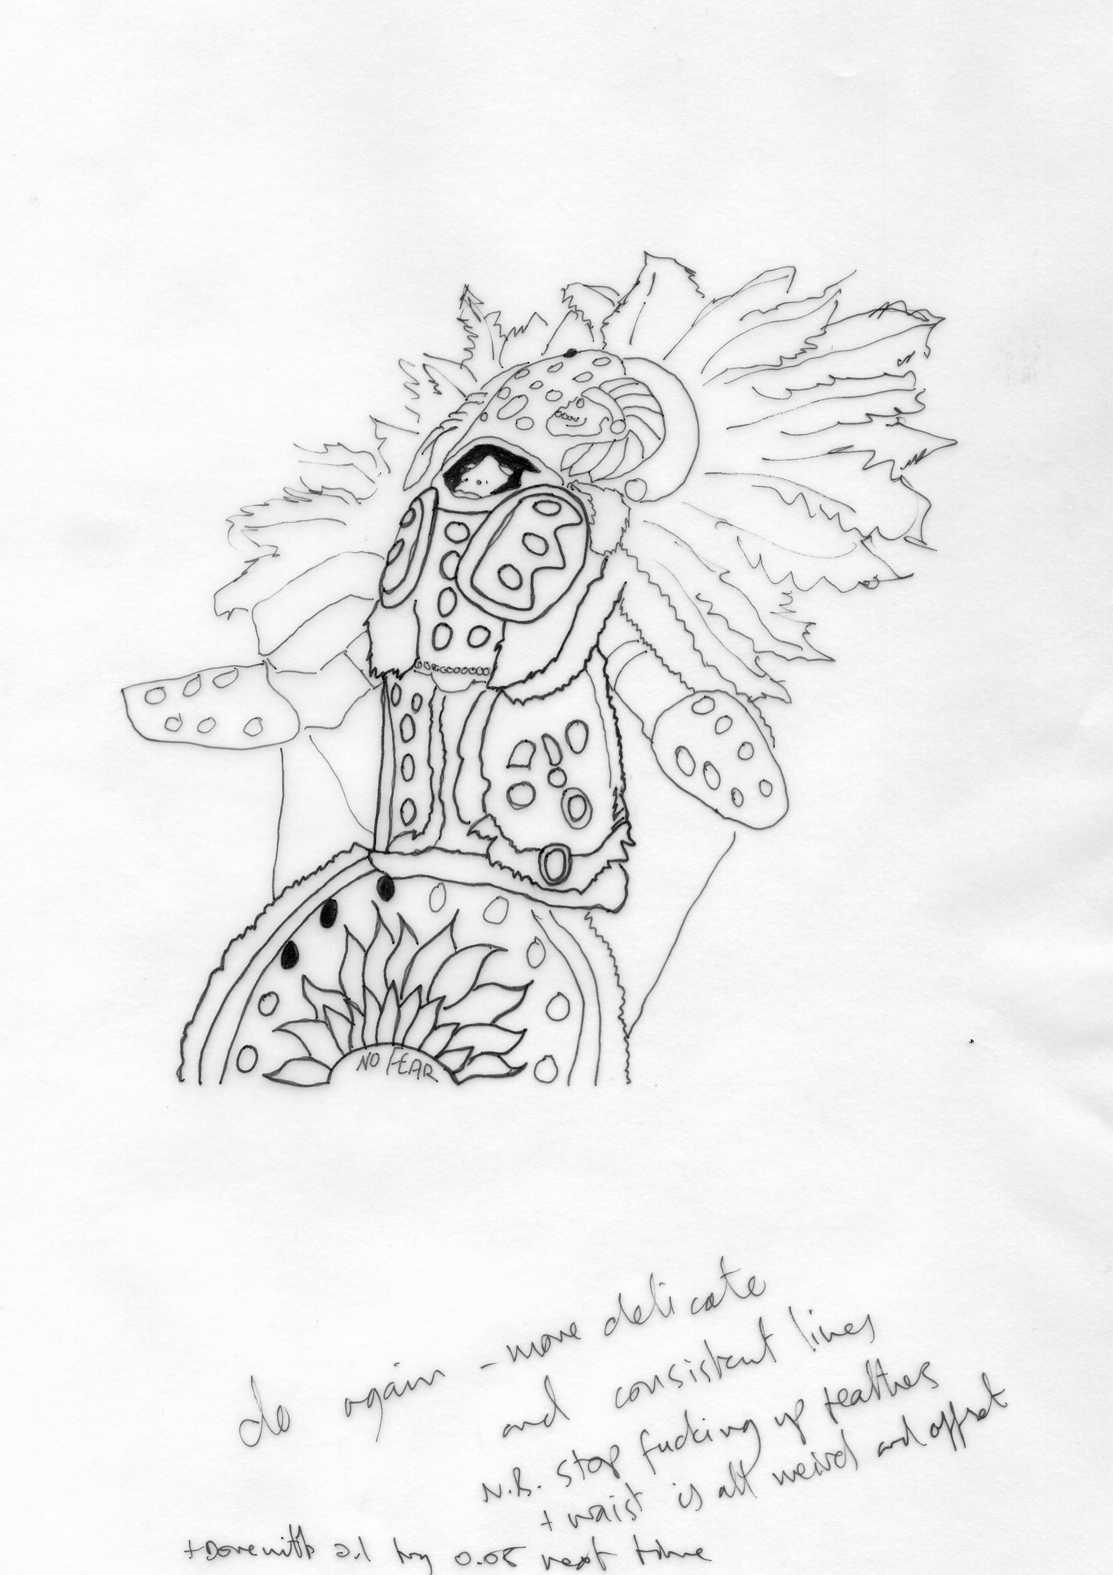 NO FEAR
do again - more delicate
and consistent lines
N.B. stop fucking up feathers
+ waist is all weird and offset
+Done with 0.1 try 0.05 next time